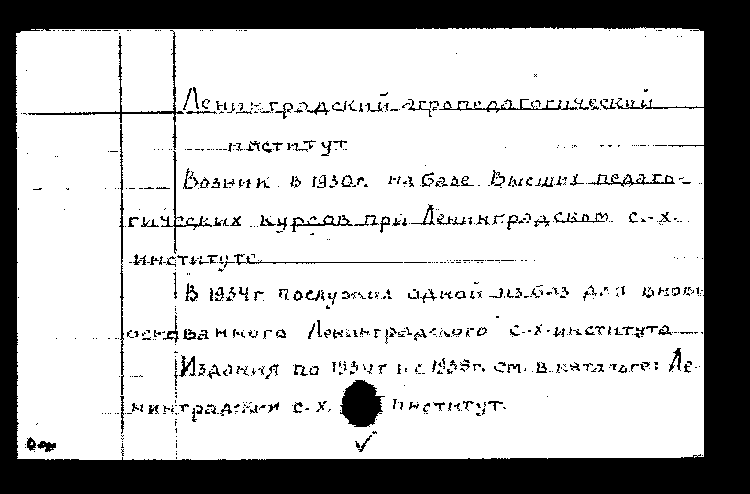 Ленинградский агропедагогический
институт
Возник в 1930г. на базе Высших педаго-
гических курсов при Ленинградском с.-х.
институте
В 1934г. послужил одной из баз для вновь
основанного Ленинградского с-х-института
Издания по 1934г и с 1938г. см. в каталоге: Ле-
нинградский с.-х. институт.